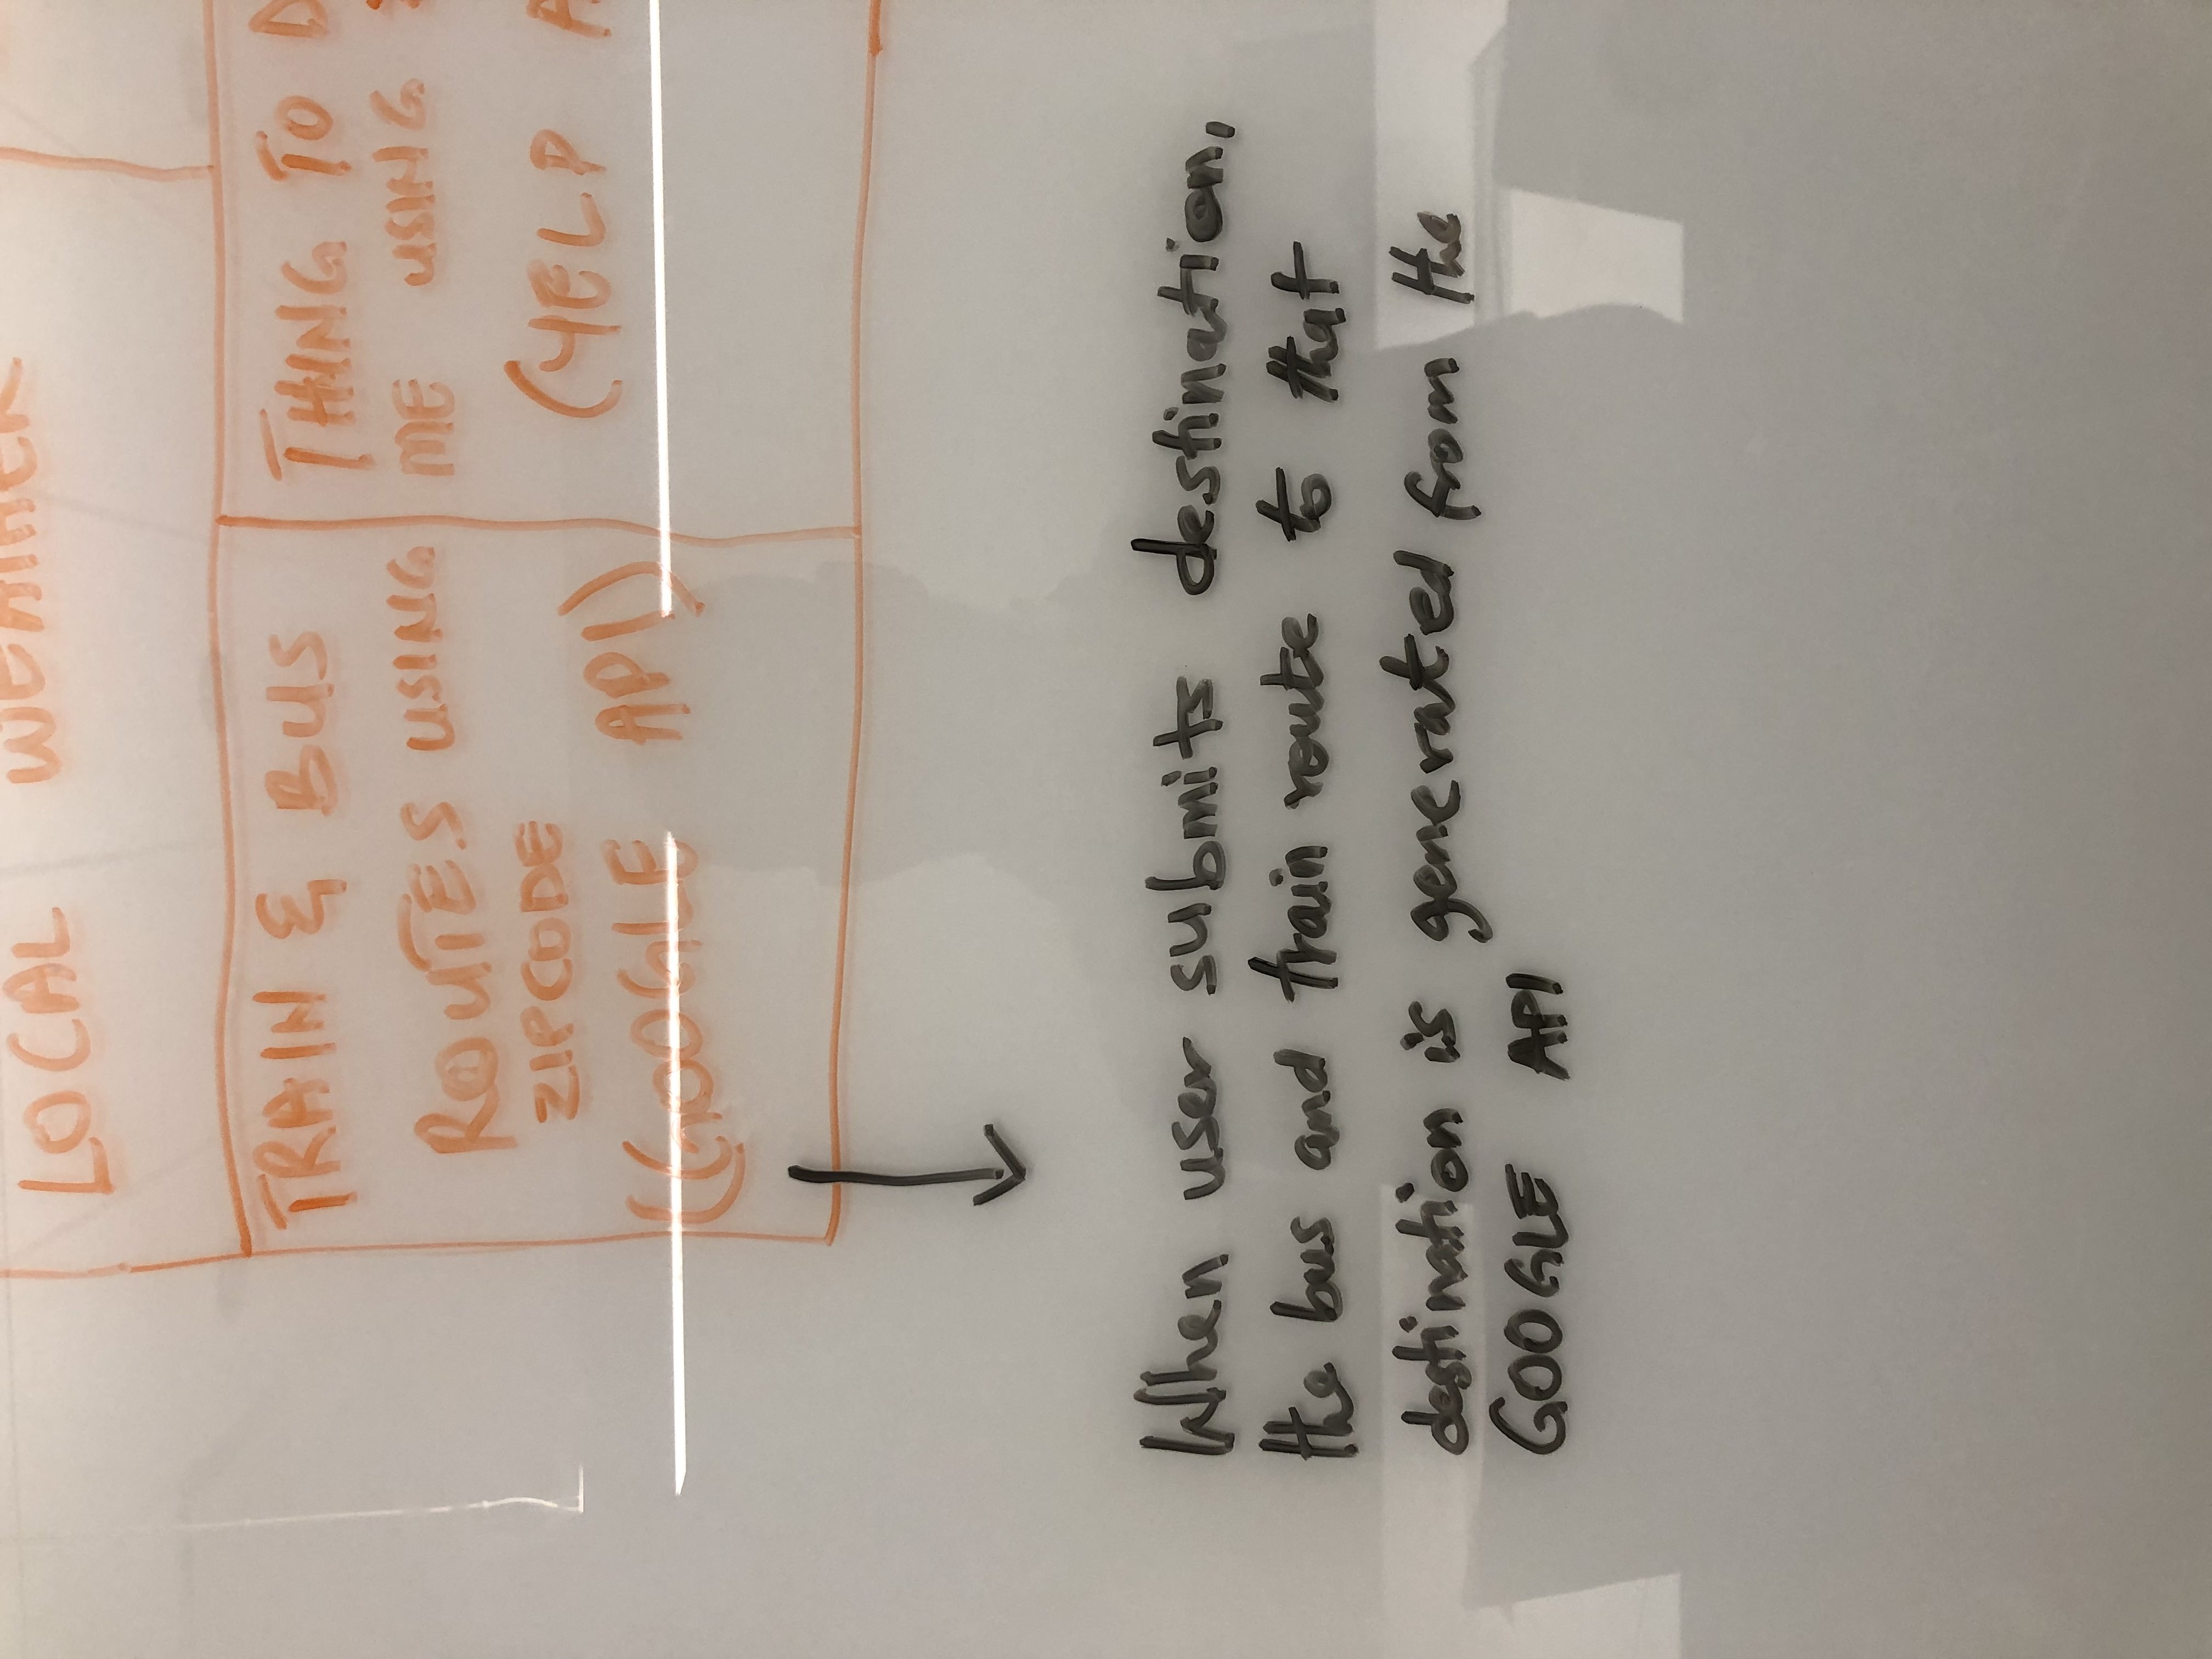 LOCAL WEATHER
TRAIN & BUS
ROUTES USING
ZIPCODE
((GOOGLE API)
THING TO D
ME USING
(YELP A
When user submits destination,
the bus and train route to that
destination is generated from the
GOOGLE API